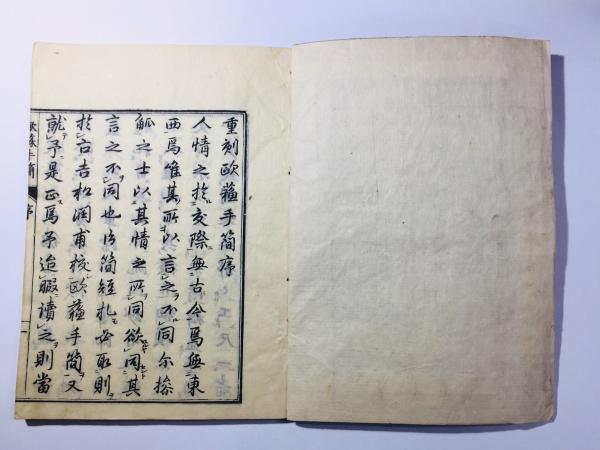 重刻歐蘇手簡序
人情之於交際無古今焉無東
西焉唯其所以言之不同尓操
觚之士以其情之所同欲同其
言之不同也後簡短札必取則
於古吉松潤甫校歐蘇手簡又
就予是正焉予迨暇讀之則當
歐蘇手簡 序